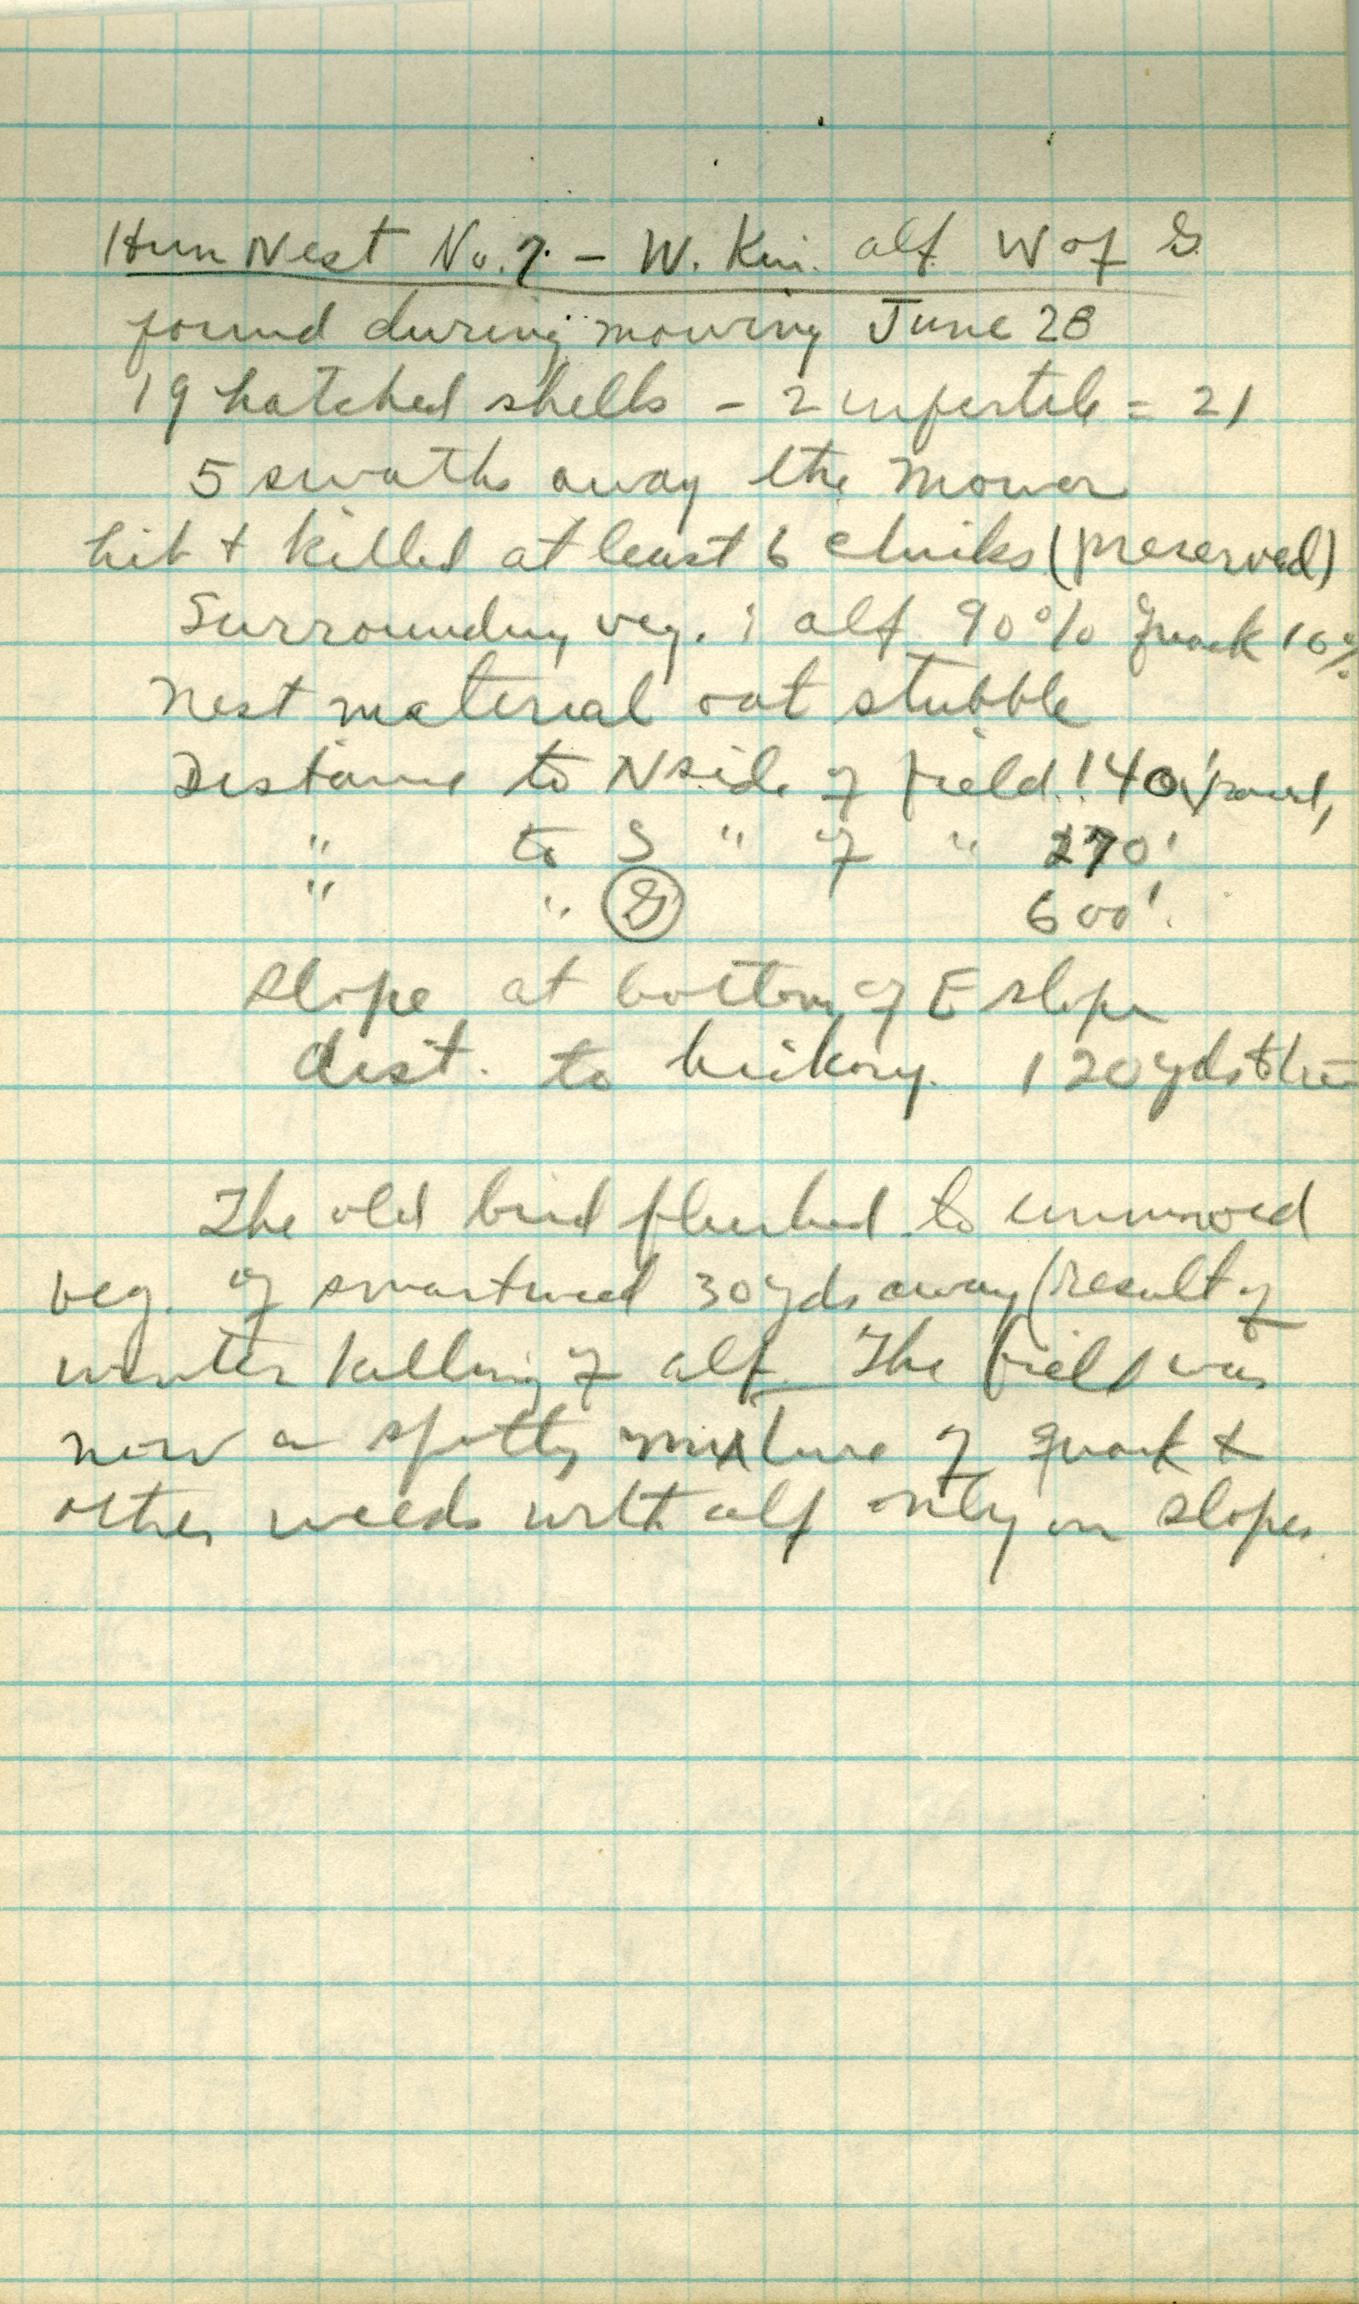 Hun Nest No. 7. - W. Kin. alf W of G
found during mowing June 28
19 hatched shells - 2 infertile = 21
5 swaths away the mower
hit + killed at least 6 chicks (preserved)
Surrounding veg. : alf 90% quack 10%
Nest material oat stubble
Distance to N side of field 140'
" to S " of " 270'
" " G 600'.
Slope at bottom of E slope
dist. to hickory. 120 yds
The old bird flushed to unmowed
veg. of smartweed 30 yds away (result of
winter killing of alf. The field was
now a spotty mixture of quack +
other weeds with alf only on slopes.